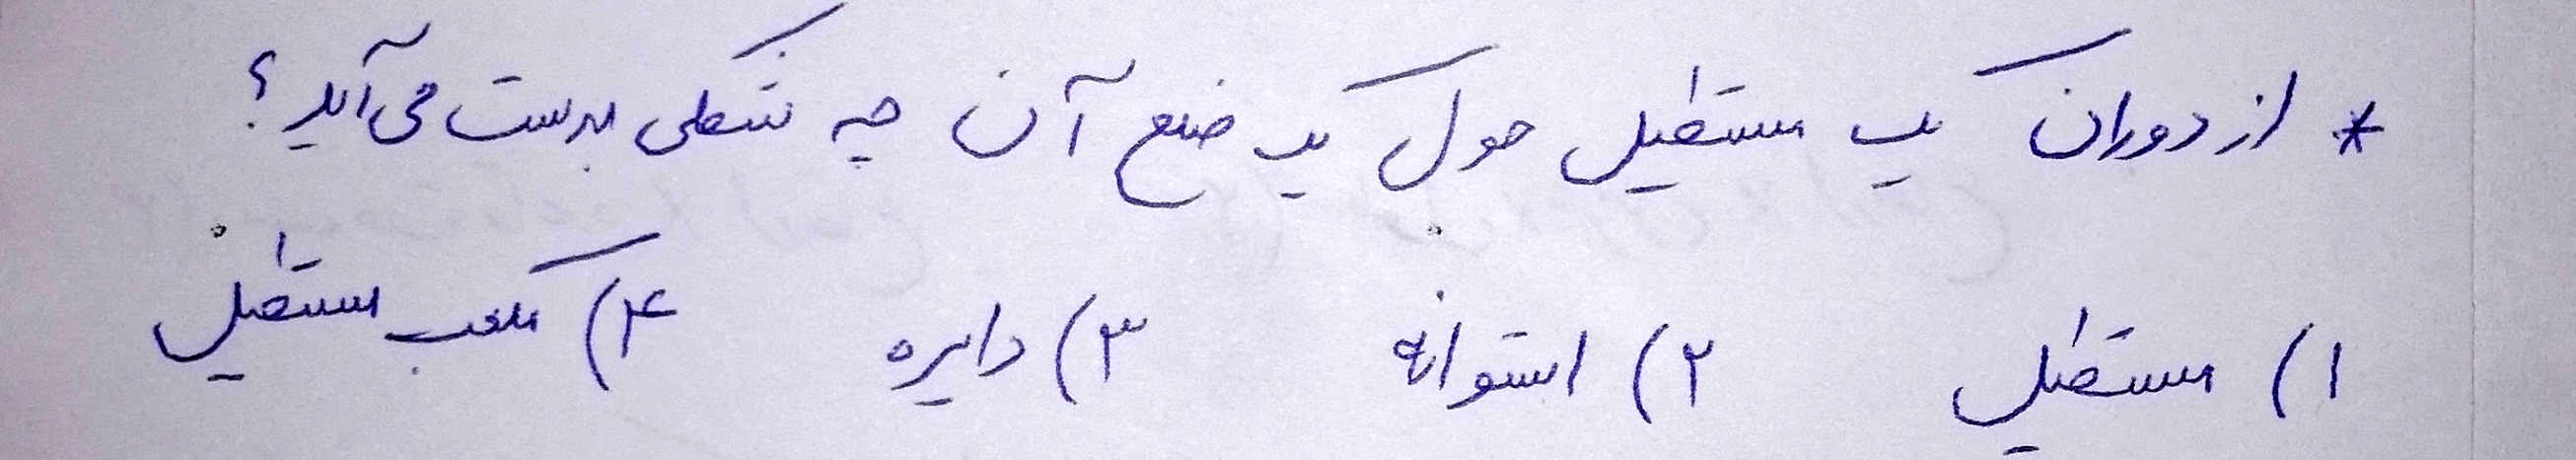 * از دوران یک مستطیل حول یک ضلع آن چه شکلی بدست می‌آید؟
۱) مستطیل ۲) استوانه ۳) دایره ۴) مکعب مستطیل